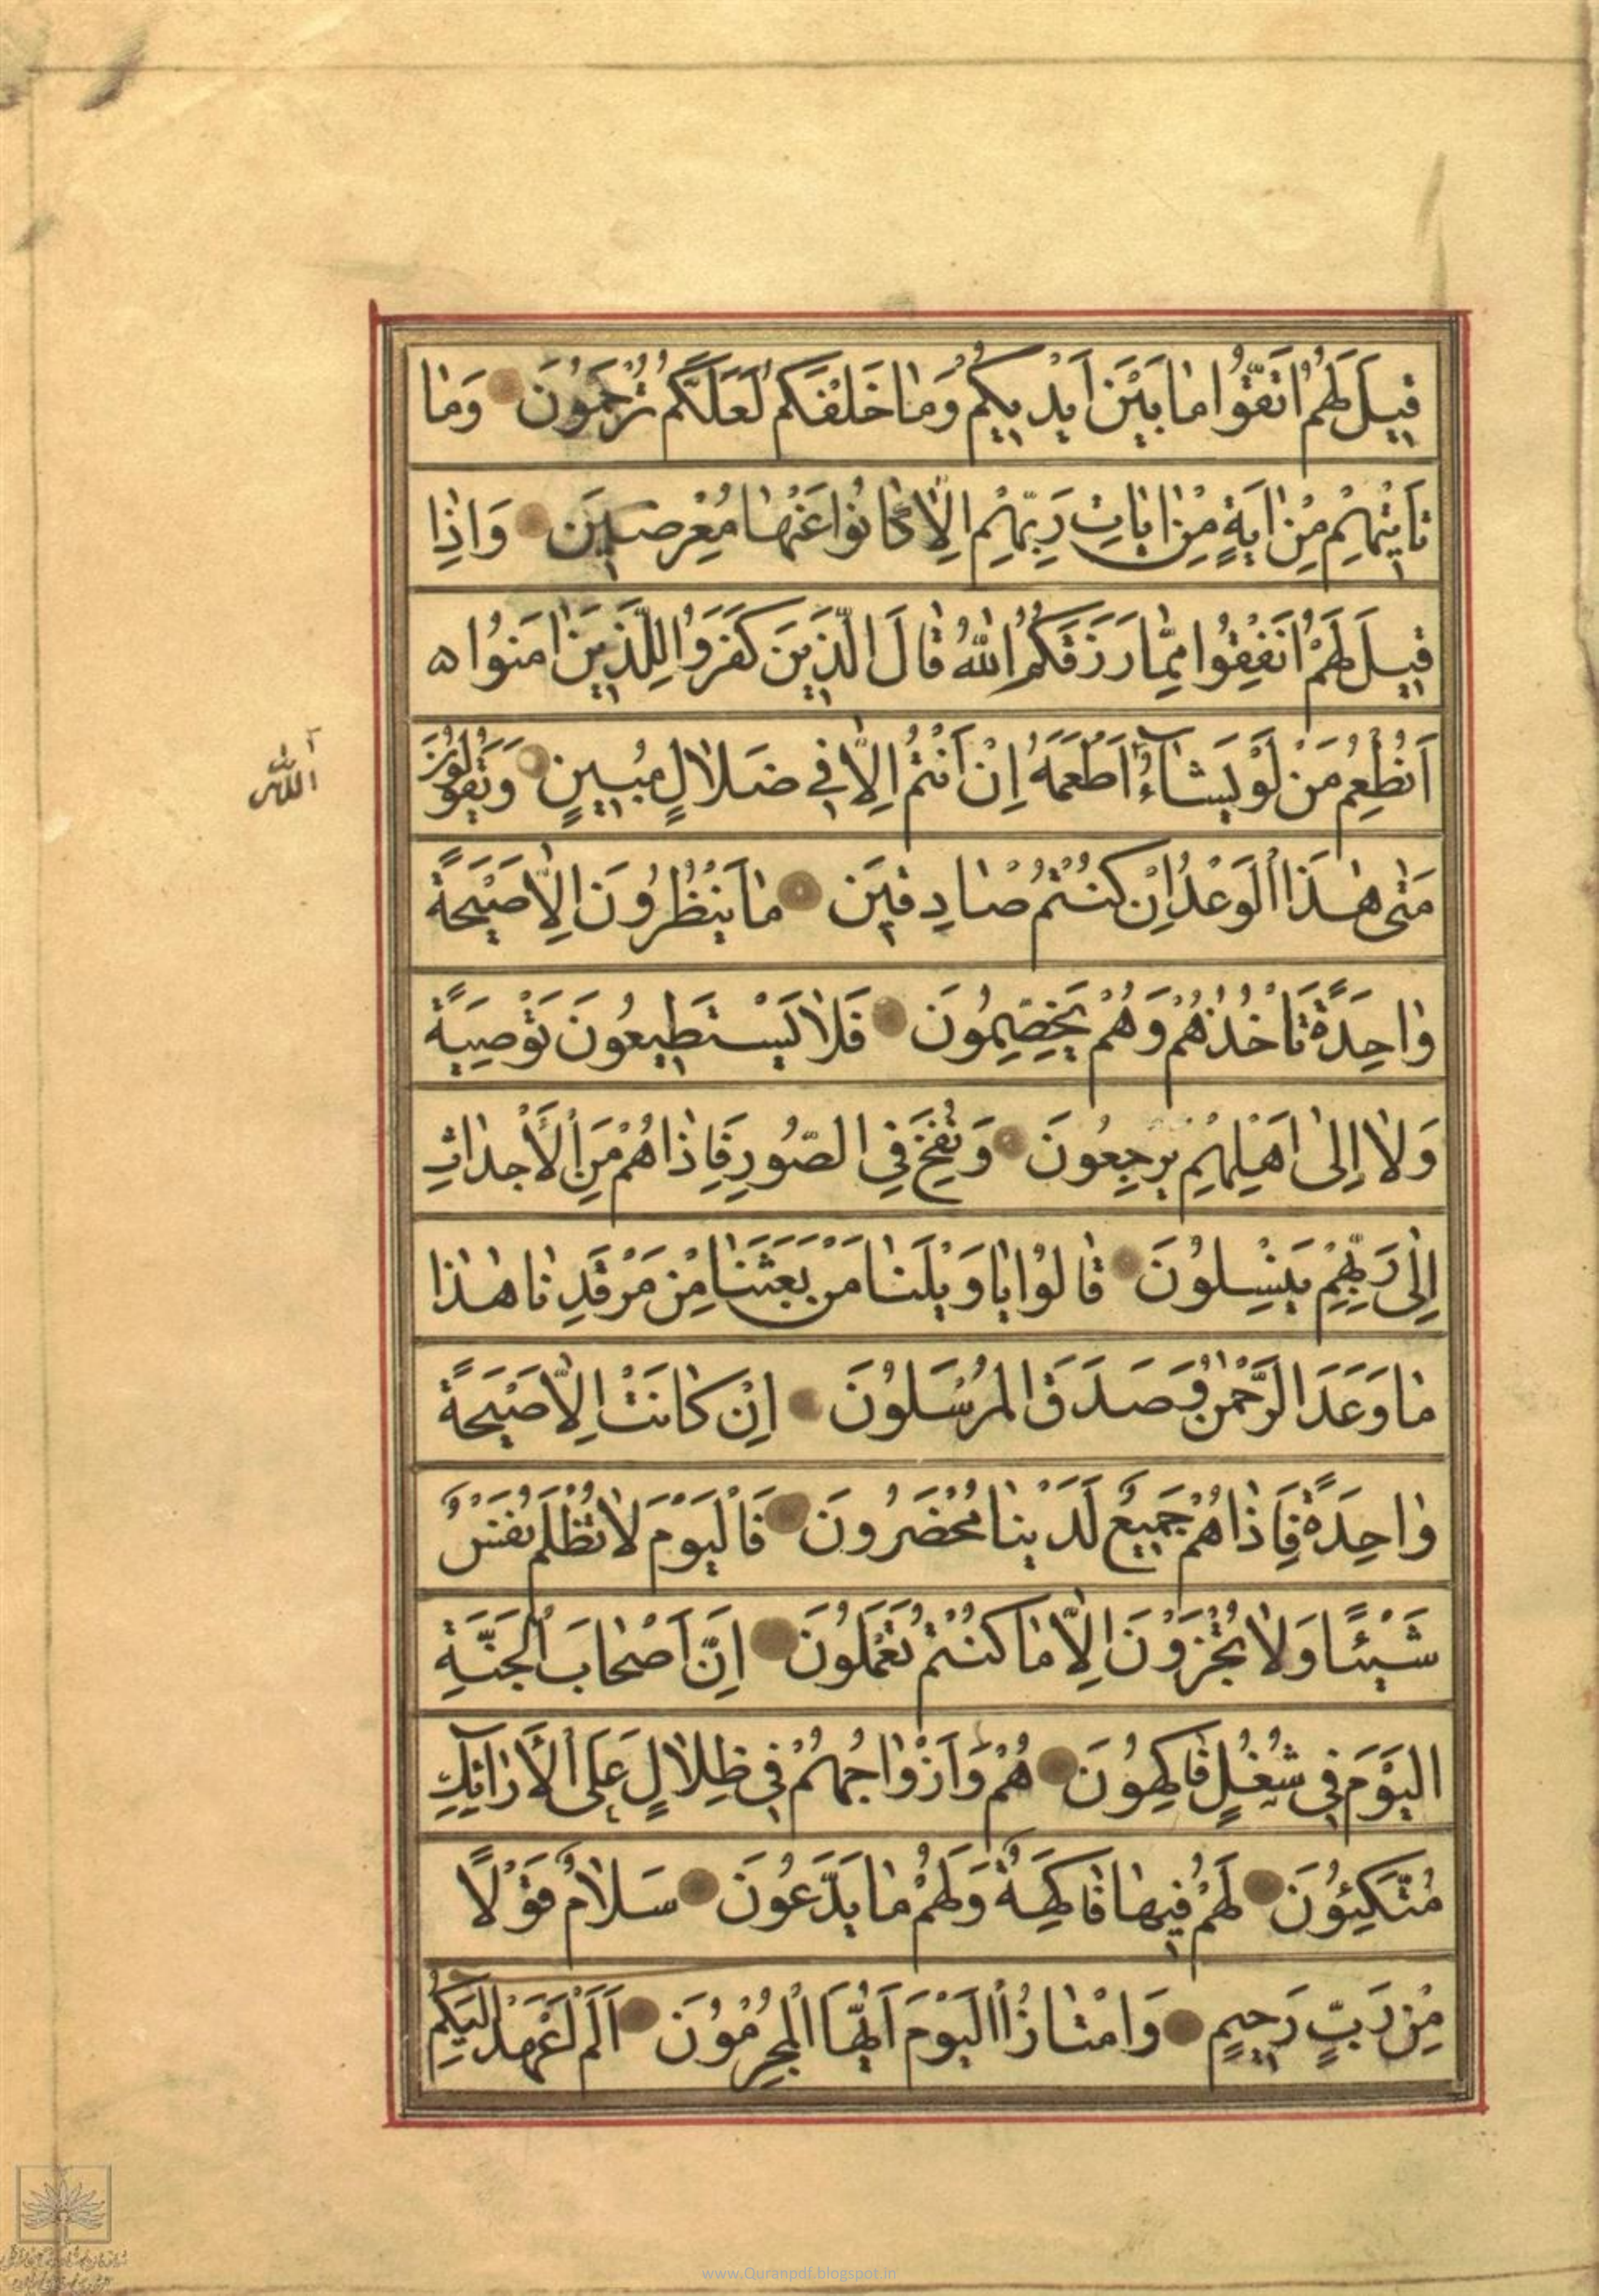 قِيلَ لَهُمُ اتَّقُوا مَا بَيْنَ اَيْدِيكُمْ وَمَا خَلْفَكُمْ لَعَلَّكُمْ تُرْحَمُونَ وَمَا
تَاْتِيهِمْ مِنْ ايَةٍ مِنْ ايَاتِ رَبِّهِمْ اِلَّا كَانُوا عَنْهَا مُعْرِضِينَ وَاِذَا
قِيلَ لَهُمْ اَنْفِقُوا مِمَّا رَزَقَكُمُ اللهُ قَالَ الَّذِينَ كَفَرُوا لِلَّذِينَ امَنُوا
اَنُطْعِمُ مَنْ لَوْ يَشَاءُ اَطْعَمَهُ اِنْ اَنْتُمْ اِلَّا فِي ضَلَالٍ مُبِينٍ وَيَقُولُونَ
الله
مَتٰى هٰذَا الْوَعْدُ اِنْ كُنْتُمْ صَادِقِينَ مَا يَنْظُرُونَ اِلَّا صَيْحَةً
وَاحِدَةً تَاْخُذُهُمْ وَهُمْ يَخِصِّمُونَ فَلَا يَسْتَطِيعُونَ تَوْصِيَةً
وَلَا اِلٰى اَهْلِهِمْ يَرْجِعُونَ وَنُفِخَ فِي الصُّورِ فَاِذَا هُمْ مِنَ الْأَجْدَاثِ
اِلٰى رَبِّهِمْ يَنْسِلُونَ قَالُوا يَا وَيْلَنَا مَنْ بَعَثَنَا مِنْ مَرْقَدِنَا هٰذَا
مَا وَعَدَ الرَّحْمٰنُ وَصَدَقَ الْمُرْسَلُونَ اِنْ كَانَتْ اِلَّا صَيْحَةً
وَاحِدَةً فَاِذَا هُمْ جَمِيعٌ لَدَيْنَا مُحْضَرُونَ فَالْيَوْمَ لَا تُظْلَمُ نَفْسٌ
شَيْئًا وَلَا تُجْزَوْنَ اِلَّا مَا كُنْتُمْ تَعْمَلُونَ اِنَّ اَصْحَابَ الْجَنَّةِ
الْيَوْمَ فِي شُغُلٍ فَاكِهُونَ هُمْ وَاَزْوَاجُهُمْ فِي ظِلَالٍ عَلَى الْأَرَائِكِ
مُتَّكِئُونَ لَهُمْ فِيهَا فَاكِهَةٌ وَلَهُمْ مَا يَدَّعُونَ سَلَامٌ قَوْلًا
مِنْ رَبٍّ رَحِيمٍ وَامْتَازُوا الْيَوْمَ اَيُّهَا الْمُجْرِمُونَ اَلَمْ اَعْهَدْ اِلَيْكُمْ
www.Quranpdf.blogspot.in